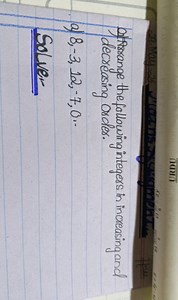 b) Arrange the following integers in increasing and
decreasing Order.
a) 8, -3, 12, -7, 0..
Solver